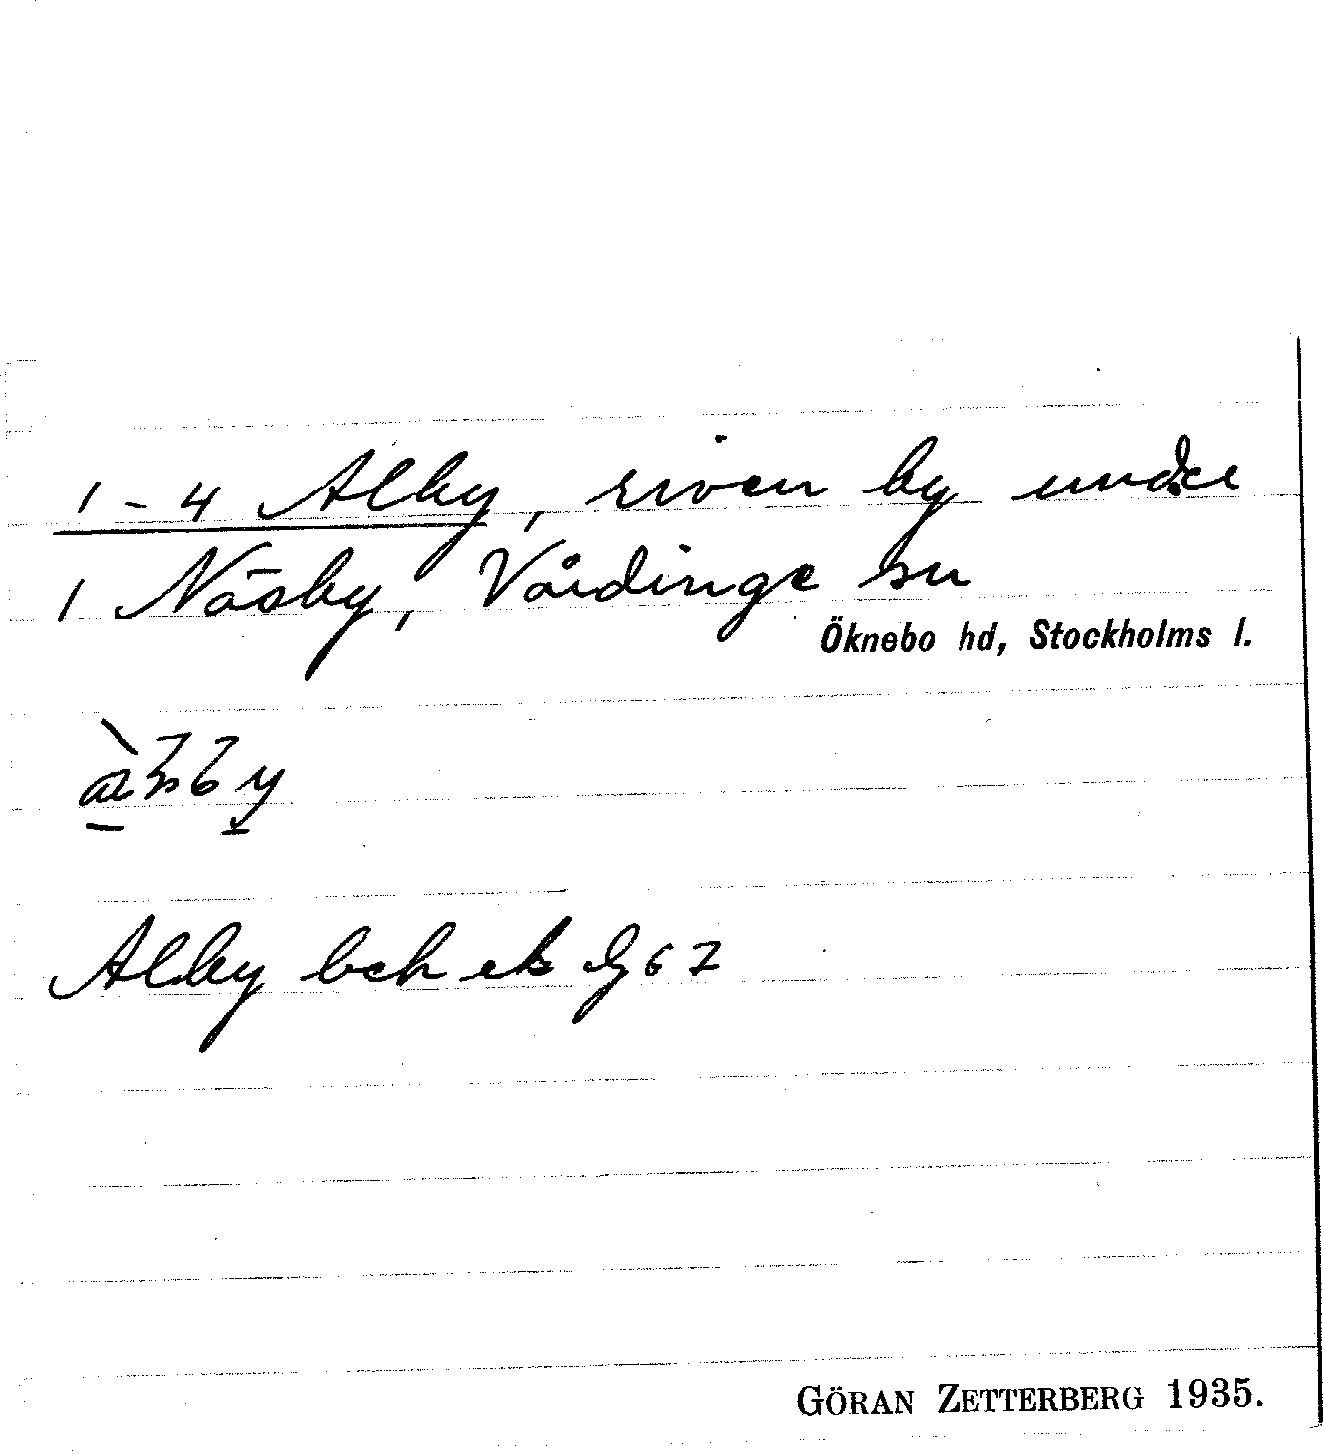 1-4 Alby, riven by under
1 Näsby, Vårdinge sn
Öknebo hd, Stockholms l.
Alby beh ek 67
GÖRAN ZETTERBERG 1935.